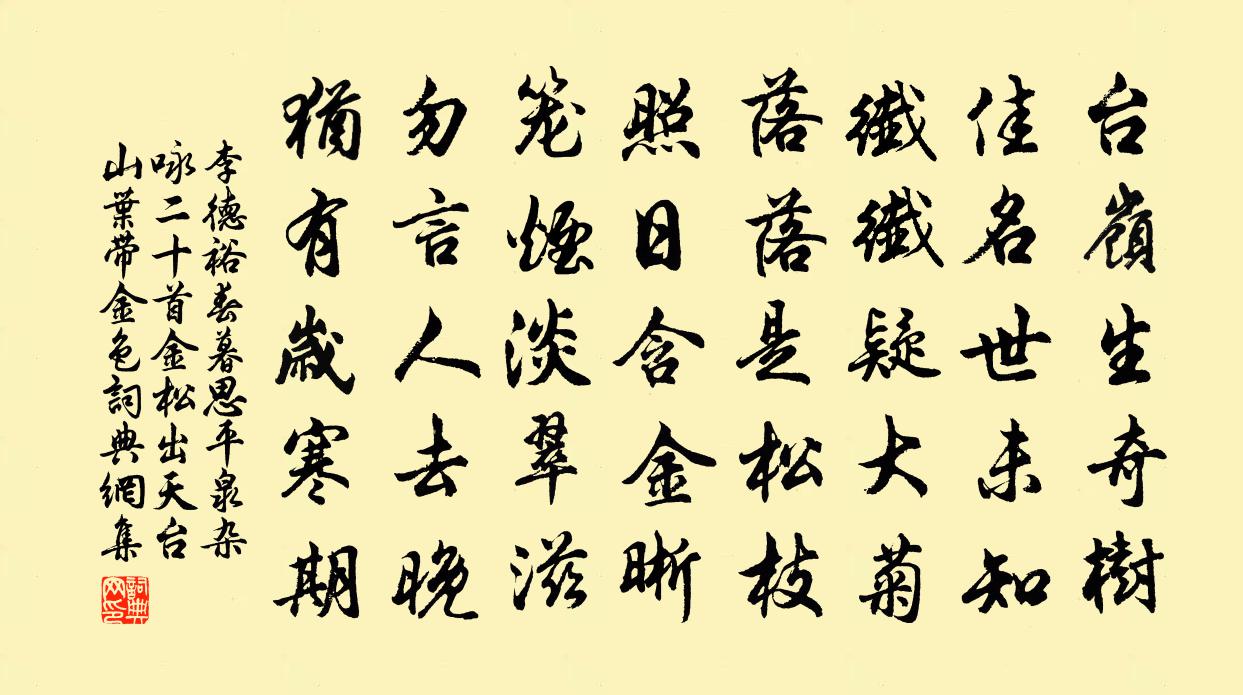 台嶺生奇樹
佳名世未知
纖纖疑大菊
落落是松枝
照日含金晰
笼煙淡翠滋
勿言人去晚
猶有歲寒期
李德裕春暮思平泉杂
咏二十首金松出天台
山葉带金色詞典網集
詞典
网印